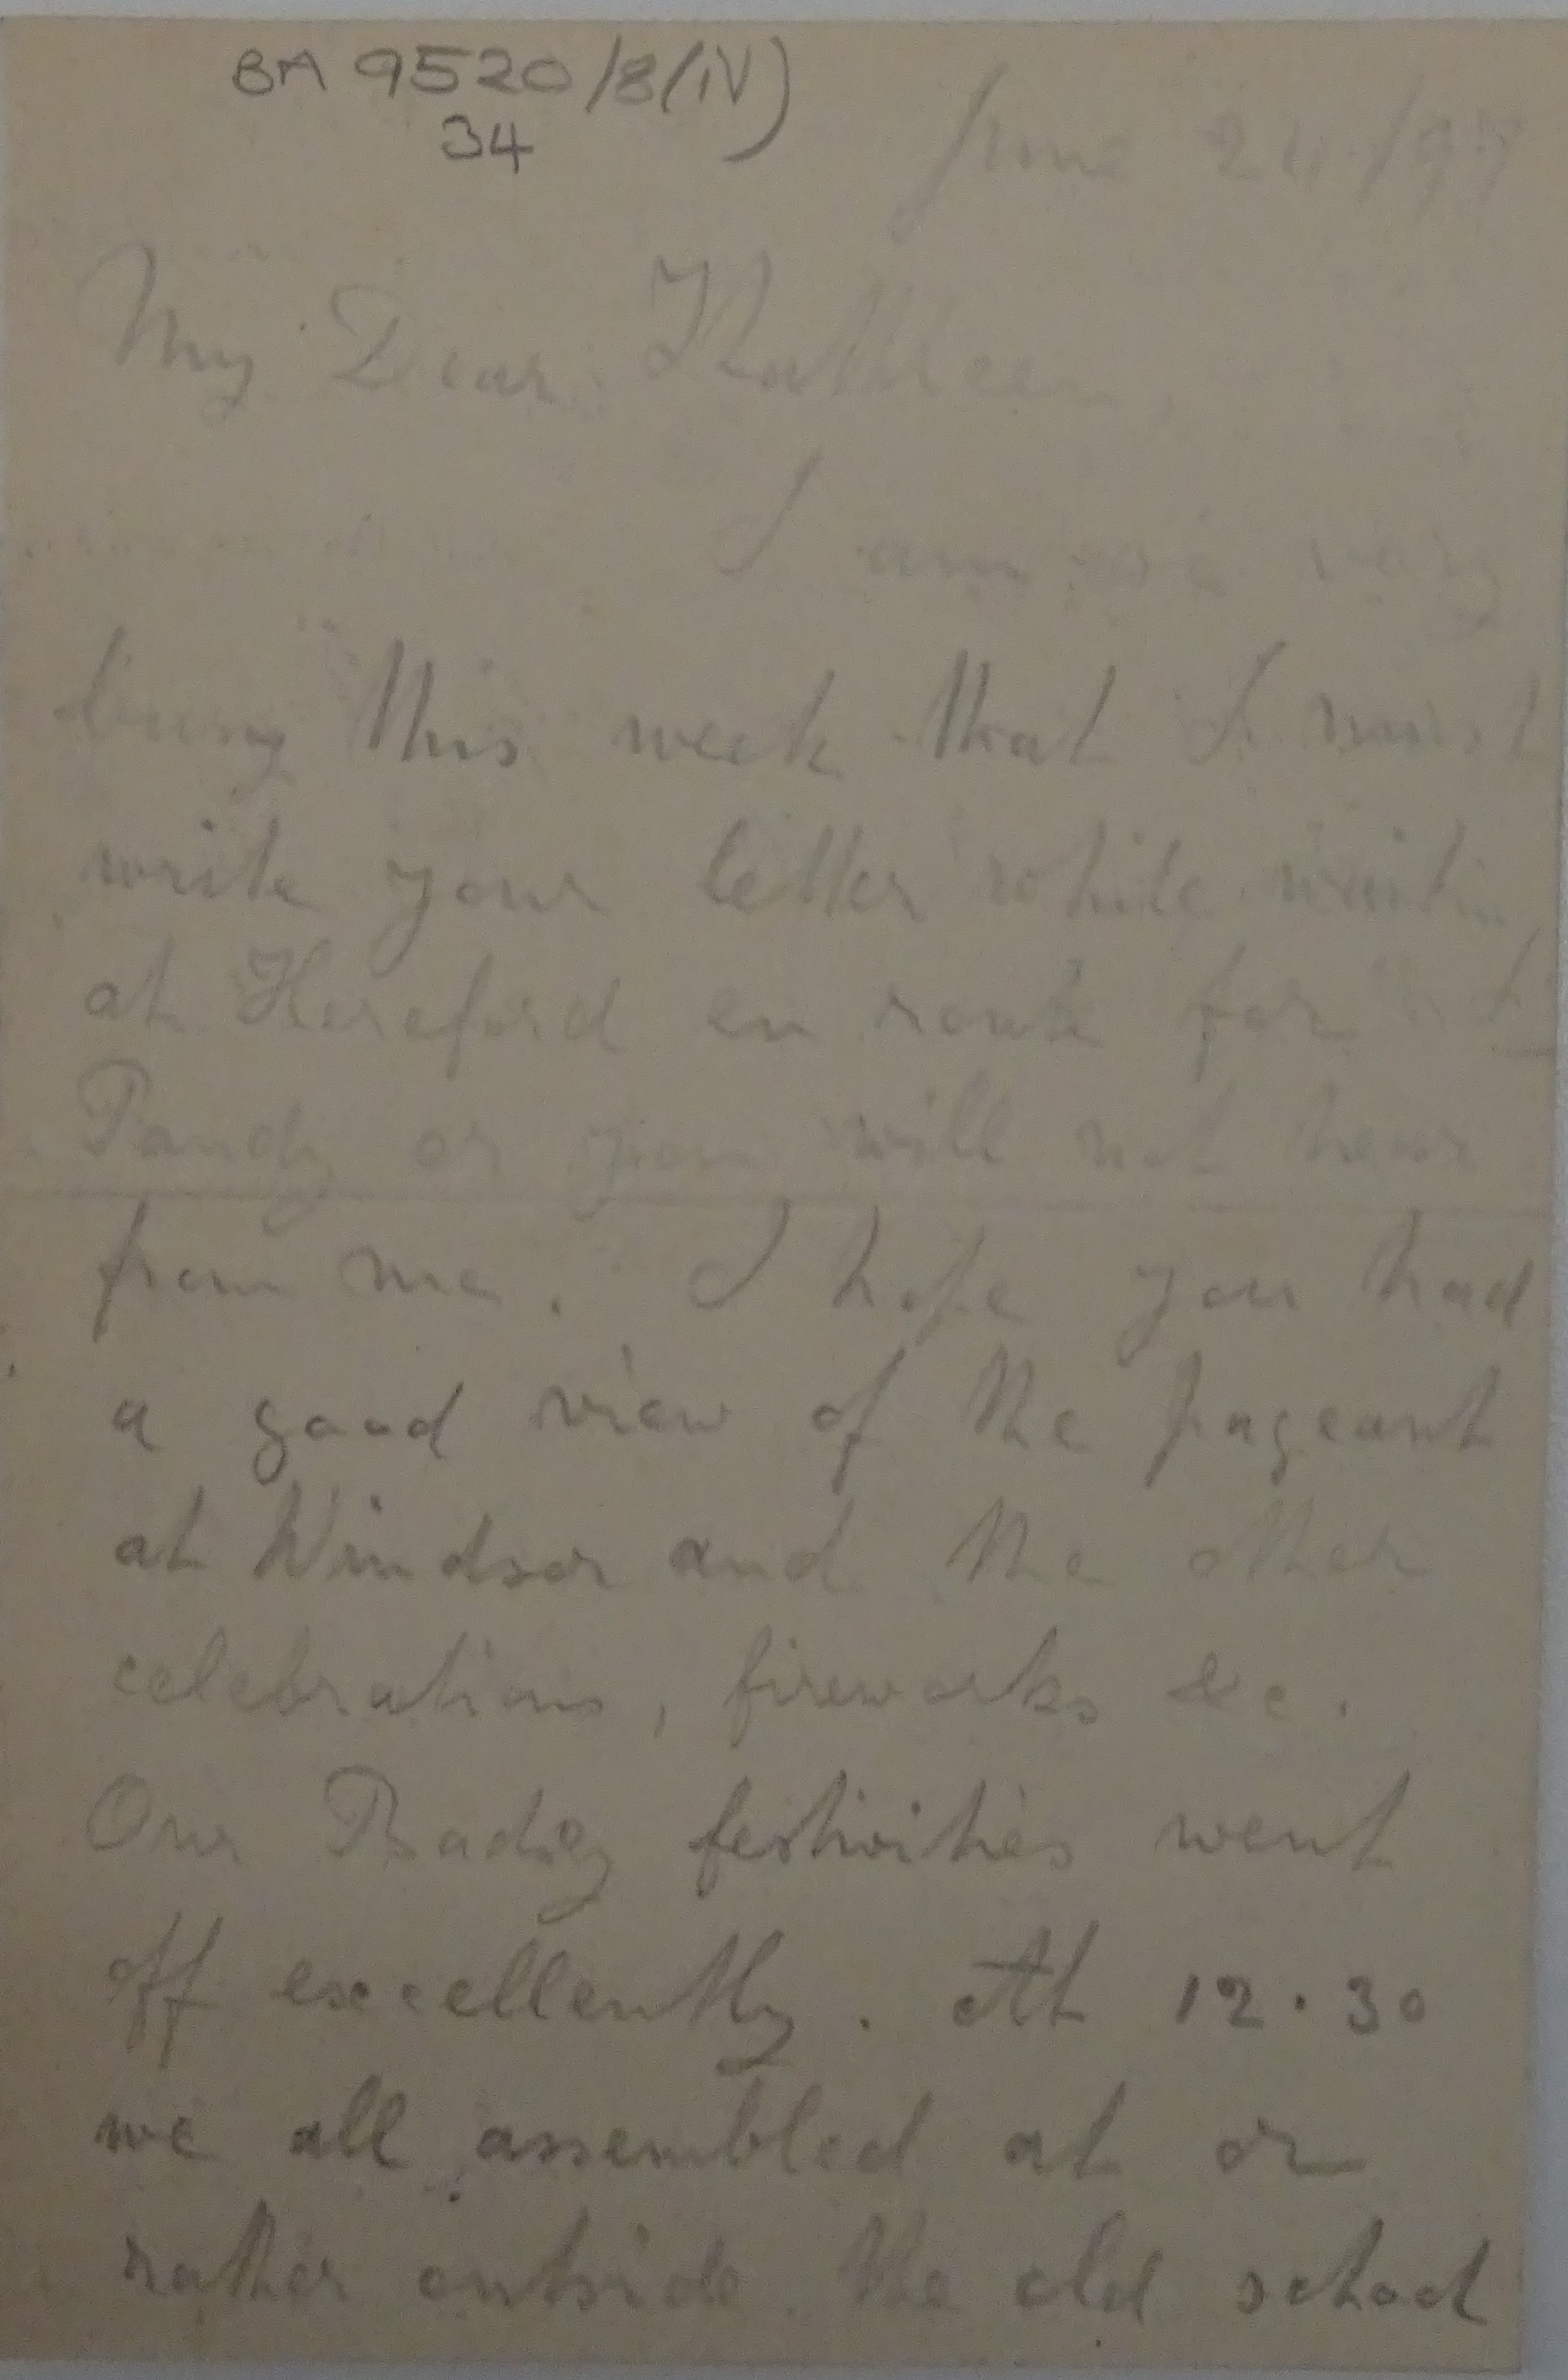 BA 9520/8(iv)
34
June 24/97
My Dear Kathleen,
I am so very
busy this week that I must
write your letter while waiting
at Hereford en route for
Pandy or you will not hear
from me. I hope you had
a good view of the pageant
at Windsor and the other
celebrations, fireworks &c.
Our festivities went
off excellently. At 12.30
we all assembled at or
rather outside the old school